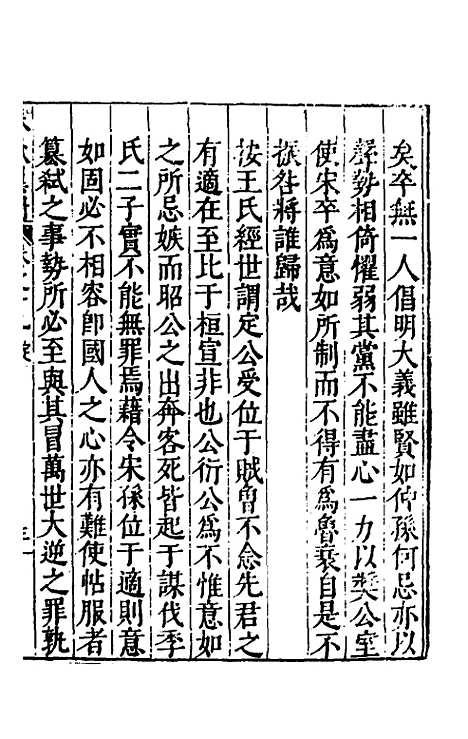 矣卒無一人倡明大義雖賢如仲孫何忌亦以
聲勢相倚懼弱其黨不能盡心一力以奬公室
使宋卒爲意如所制而不得有爲魯衰自是不
振咎將誰歸哉
按王氏經世謂定公受位于賊魯不念先君之
有適在至比于桓宣非也公衍公爲不惟意如
之所忌嫉而昭公之出奔客死皆起于謀伐季
氏二子實不能無罪焉藉令宋孫位于適則意
如固必不相容卽國人之心亦有難使帖服者
簒弑之事勢所必至與其冒萬世大逆之罪孰